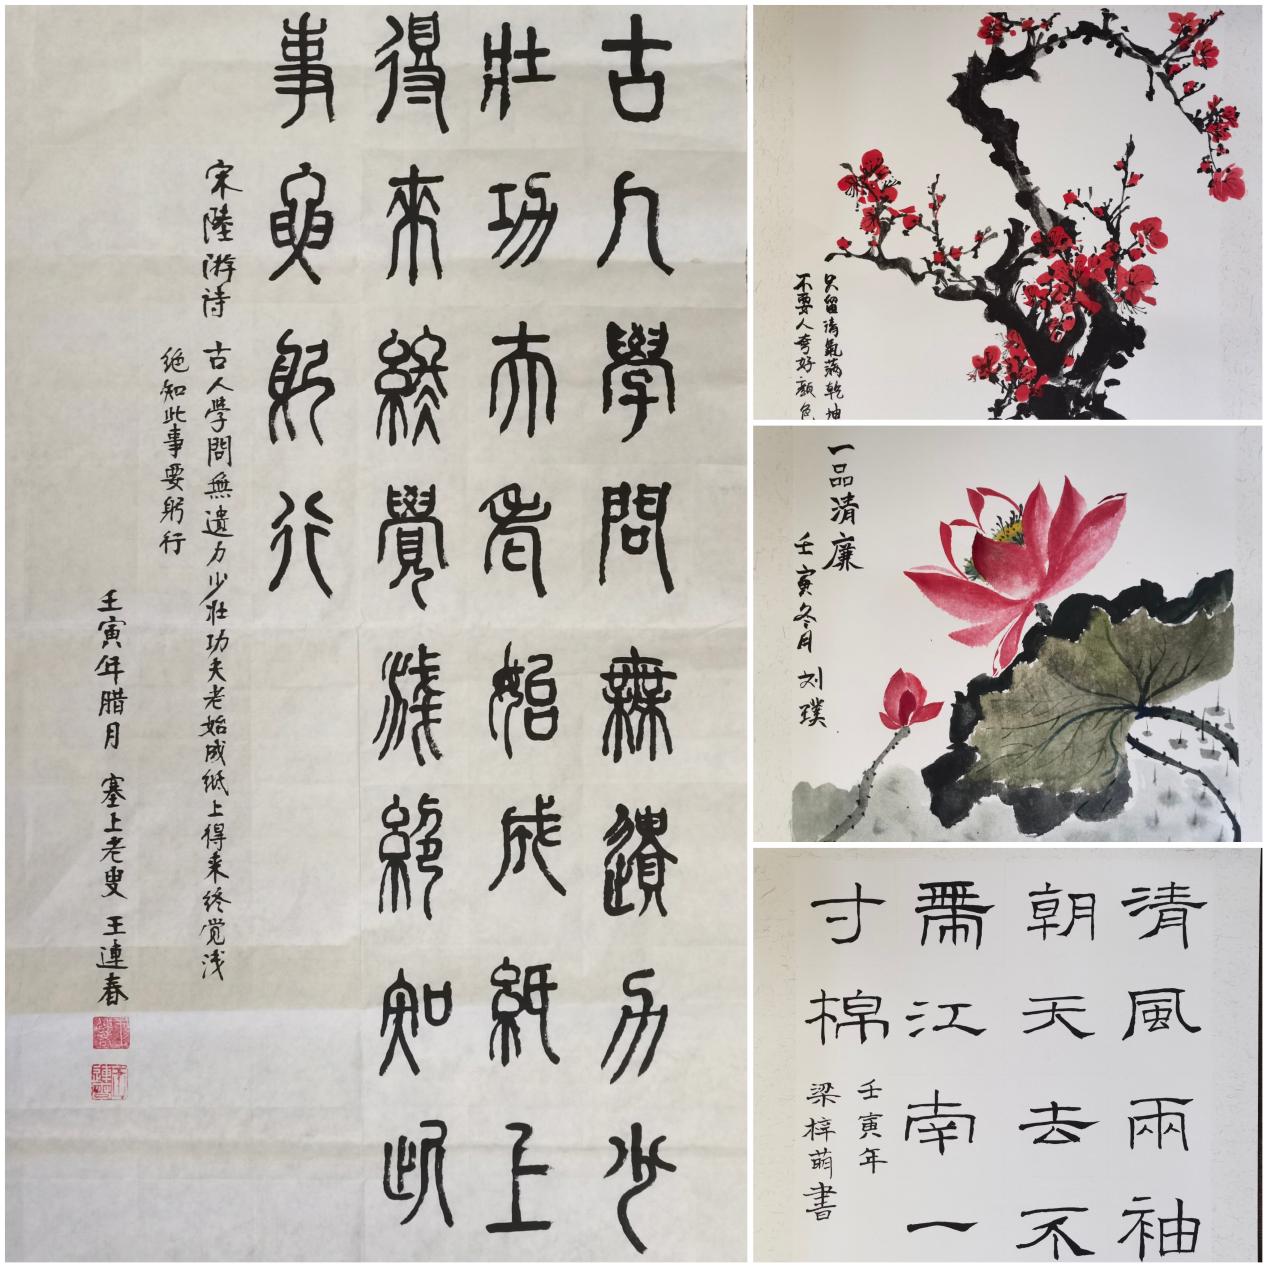 古人學問無遺力少
壯功夫老始成紙上
得來終覺淺絕知此
事要躬行
宋陸游诗 古人学問無遺力少壮功夫老始成纸上得来终觉浅
绝知此事要躬行
壬寅年腊月 塞上老叟 王連春
只留清氣满乾坤
不要人夸好顏色
一品清廉
壬寅冬月 刘璞
清風兩袖
朝天去不
帶江南一
寸棉
壬寅年
梁梓萌書